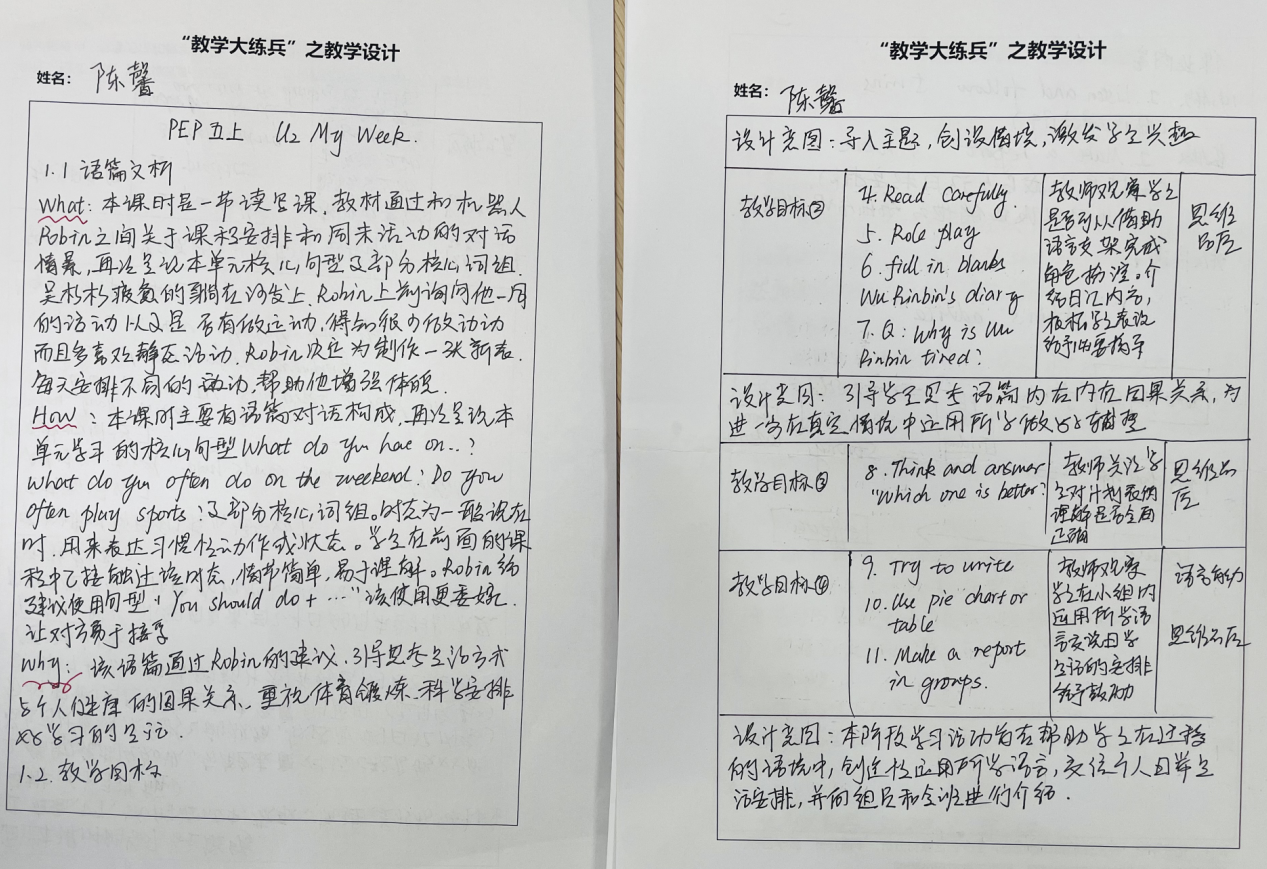 “教学大练兵”之教学设计
姓名： 陈馨
PEP 五上 U2 My Week.
1.1 语篇文析
What: 本课时是一节读写课，教材通过和机器人
Robin之间关于课程安排和周末活动的对话
情景，再次呈现本单元核心句型及部分核心词组.
吴彬彬疲惫的躺在沙发上，Robin上前询问他一周
的活动以及是否有做运动，得知很少做运动
而且多喜欢静态活动. Robin决定为制作一张新表.
每天安排不同的运动，帮助他增强体魄.
How : 本课时主要有语篇对话构成，再次呈现本
单元学习的核心句型What do you have on..?
What do you often do on the weekend? Do you
often play sports?及部分核心词组。时态为一般现在
时，用来表达习惯性动作或状态。学生在前面的课
程中已接触过该时态，情节简单，易于理解。Robin给
建议使用句型“You should do + …”该使用更委婉.
让对方易于接受
Why: 该语篇通过Robin的建议，引导思考生活方式
与个人健康的因果关系，重视体育锻炼，科学安排
学习的生活.
1.2. 教学目标
“教学大练兵”之教学设计
姓名： 陈馨
设计意图：导入主题，创设情境，激发学生兴趣
教学目标②
4. Read Carefully.
5. Role play
6. fill in blanks
Wu Binbin's diary
7. Q: Why is Wu
Binbin tired?
教师观察学生
是否可以借助
语言支架完成
角色扮演。介
绍日记内容，
根据学生表现
给予必要指导
思维
品质
设计意图：引导学生思考语篇内在内在因果关系，为
进一步在真实情境中运用所学做好铺垫
教学目标③
8. Think and answer
"Which one is better?
教师关注学
生对计划表的
理解是否全面
正确
思维品
质
教学目标④
9. Try to write
10. Use pie chart or
table
11. Make a report
in groups.
教师观察
学生在小组内
运用所学语
言交谈日常
生活的安排
给予鼓励
语言能力
思维品质
设计意图：本阶段学习活动旨在帮助学生在迁移
的语境中，创造性运用所学语言，交流个人日常生
活安排，并向组员和全班进行介绍.